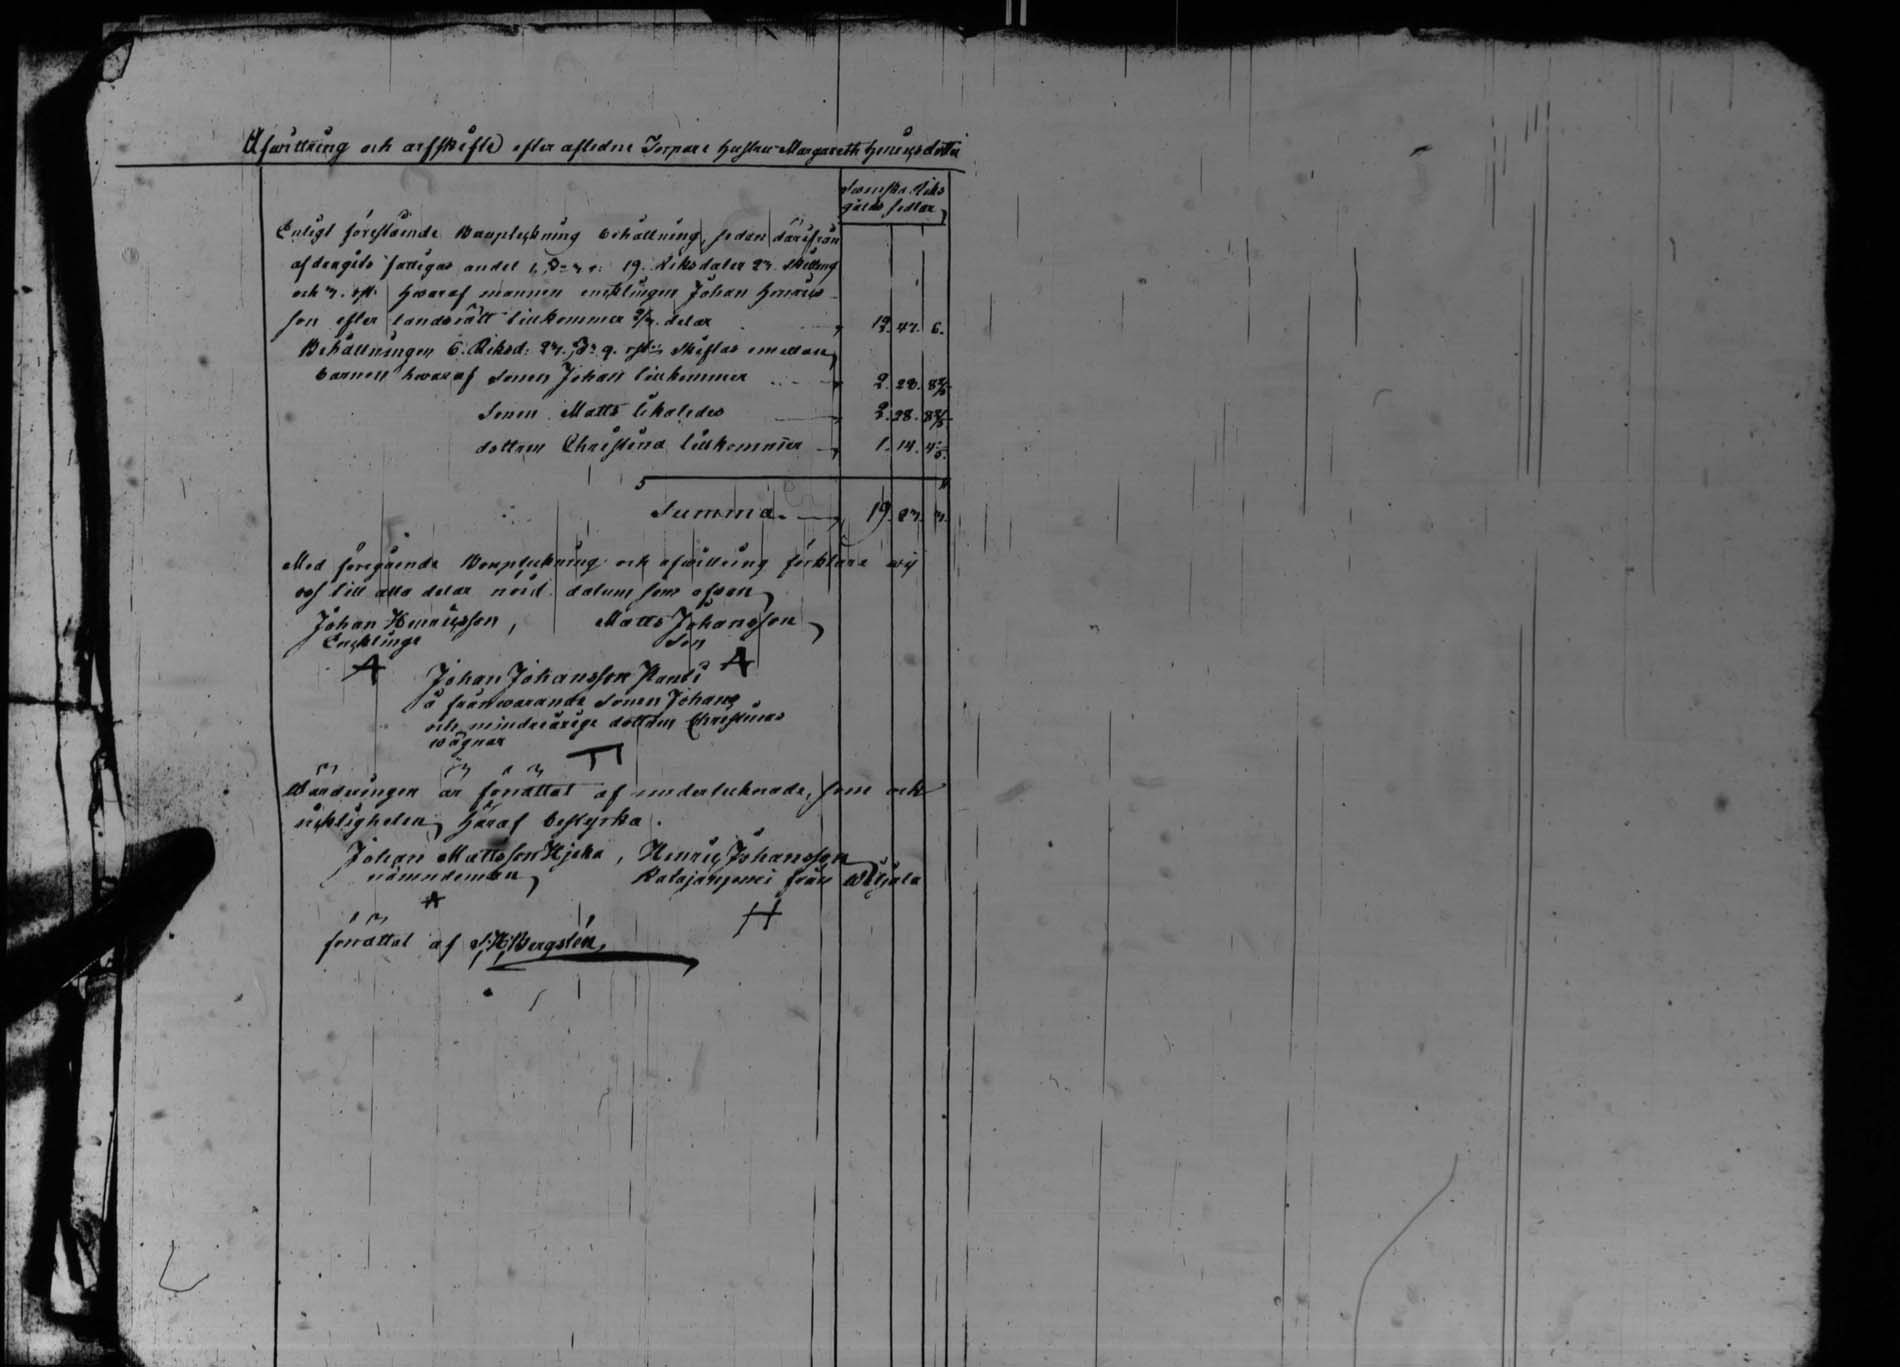 Afwittring och arfskifte efter afledne Torpare hustru Margareth Henricsdotter
Svenska Riks
gälds sedlar
Enligt förestående Bouptekning behållning, sedan därifrån
afdragits fattigas andel 19. Riksdaler 23. skilling
och 3. rst. hwaraf mannen encklingen Johan Henrics
son efter landsrätt tillkommer 2/3. delar 12. 47. 6.
Behållningen 6. Riksd: 23. sk: 9. rst: skiftas emellan
barnen hwaraf sonen Johan tillkommer 2. 28. 8 2/5
Sonen Matts likaledes 2. 28. 8 2/5
dottren Christina tillkommer 1. 14. 4 1/5.
Summa 19. 23. 3.
Med föregående Bouptekning och afwittring förklara wij
oss till alla delar nöid. datum som ofwan
Johan Henricsson, Matts Johansson
Encklinge Son
Johan Johansson
å frånwarande sonen Johans
och minderåriga dottren Christinas
wägnar
Wärderingen är förrättat af undertecknade, som ock
ricktigheten häraf bestyrka.
Johan Mattsson Hjeka, Henric Johansson
nämndeman, Katajaniemi från
förrättat af Bergstén